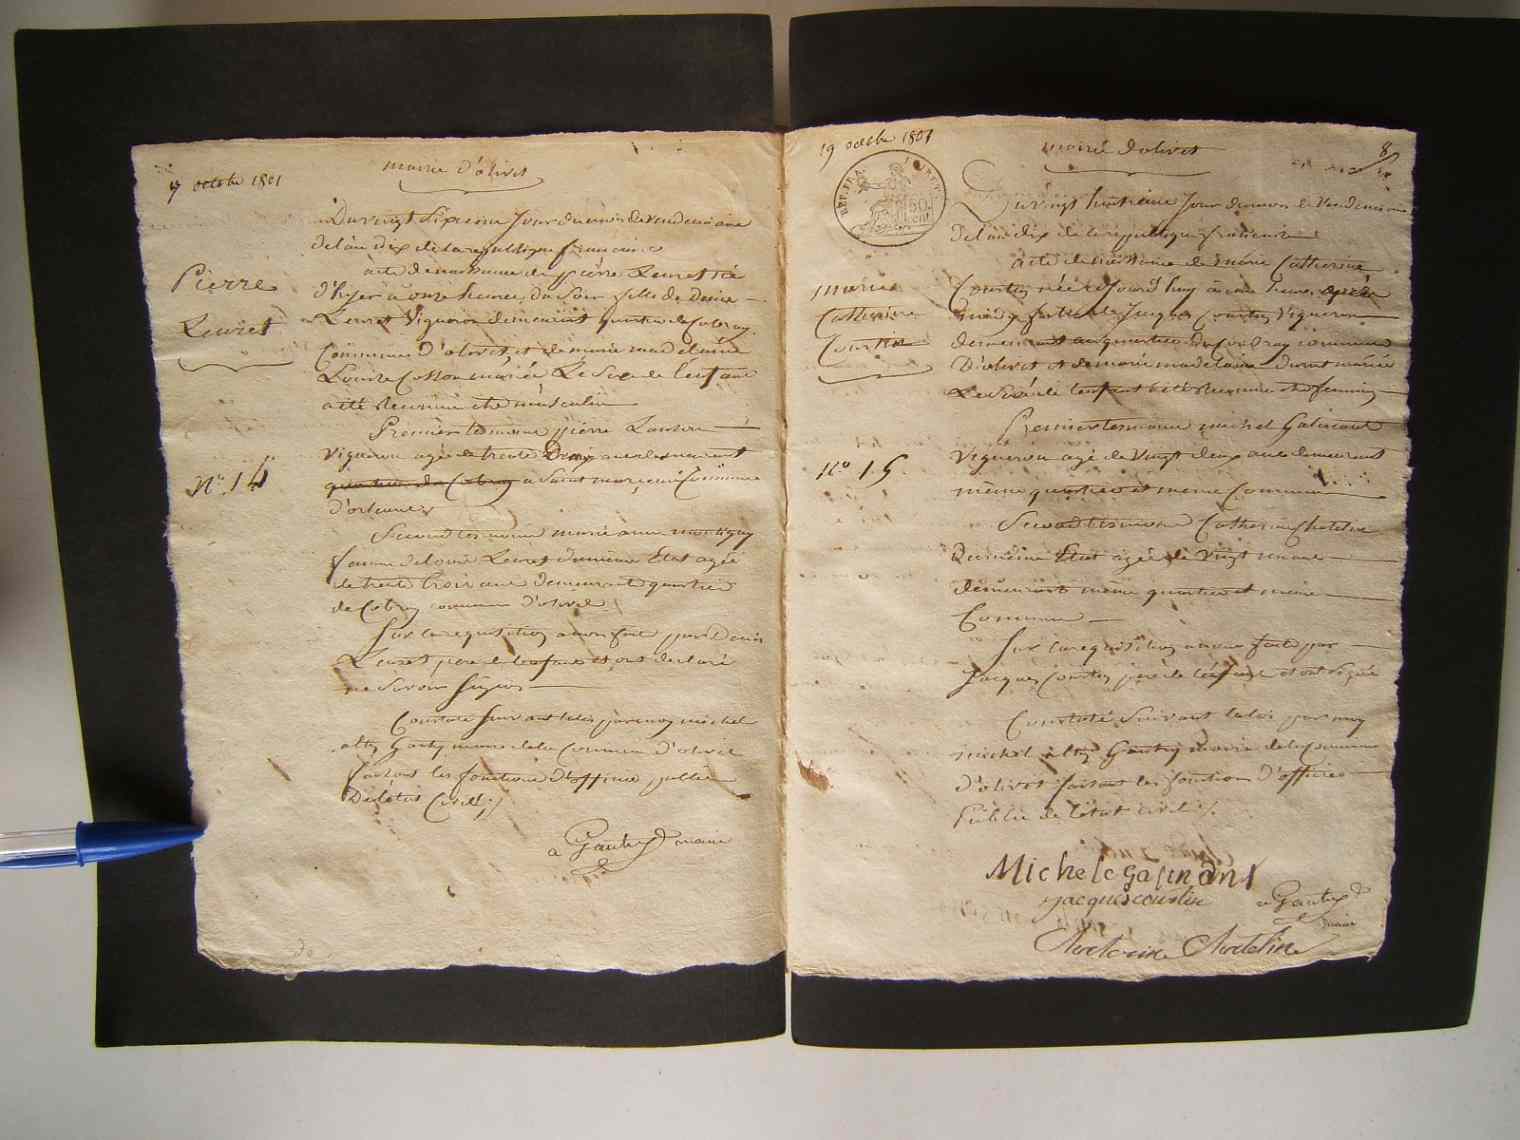 octobre 1801
mairie d'olivet
Du vingt Sixieme Jour du mois de Vendemiaire
de l'an dix de la republique francaise
acte de naissance de pierre Leuret né
Pierre
d'hyer a onze heures du Soir fille de Denis
Leuret
Leuret Vigneron demeurant quartier de Cobray
Commune d'olivet et de marie madelaine
Louise mariée Le Sexe de l'enfant
a été Reconnu etre masculin
Premier temoin pierre
Vigneron agé de trente Deux ans demeurant
N° 14
quartier de Cobray a Saint marceau Commune
d'orleans
Second temoin marie anne
femme de Leuret dumeme Etat agée
de trente trois ans demeurante quartier
de Cobray commune d'olivet
Sur la requisition a nous fait par Denis
Leuret pere de l'enfant et ont declaré
ne Savoir Signer
Constaté Suivant la loi par moy michel
Gautry maire de la Commune d'olivet
faisant les fonctions d'officier public
De l'etat Civil
Gautry maire
19 octobre 1801
mairie d'olivet
8
REP. FRA.
50
Du vingt huitieme Jour du mois de Vendemiaire
de l'an dix de la republique francaise
acte de naissance de marie Catherine
marie
Courtin née cejourd'huy a une heure apres
Catherine
midy fille de Jacques Courtin Vigneron
Courtin
demeurant au quartier de Coubray commune
D'olivet et de marie madelaine mariée
Le Sexe de l'enfant a été Reconnu etre feminin
Premier temoin michel
N° 15.
Vigneron agé de Vingt deux ans demeurant
même quartier et meme Commune
Second temoin Catherine Chatelin
Dumême Etat agée de Vingt
demeurant même quartier et meme
Commune
Sur la requisition a nous faite par
Jacques Courtin pere de l'enfant et ont Signé
Constaté Suivant la loi par moy
michel Gautry maire de la Commune
d'olivet faisant les fonctions d'officier
Public de l'etat civil
Michel
jacques courtin
Gautry
maire
Chatelin